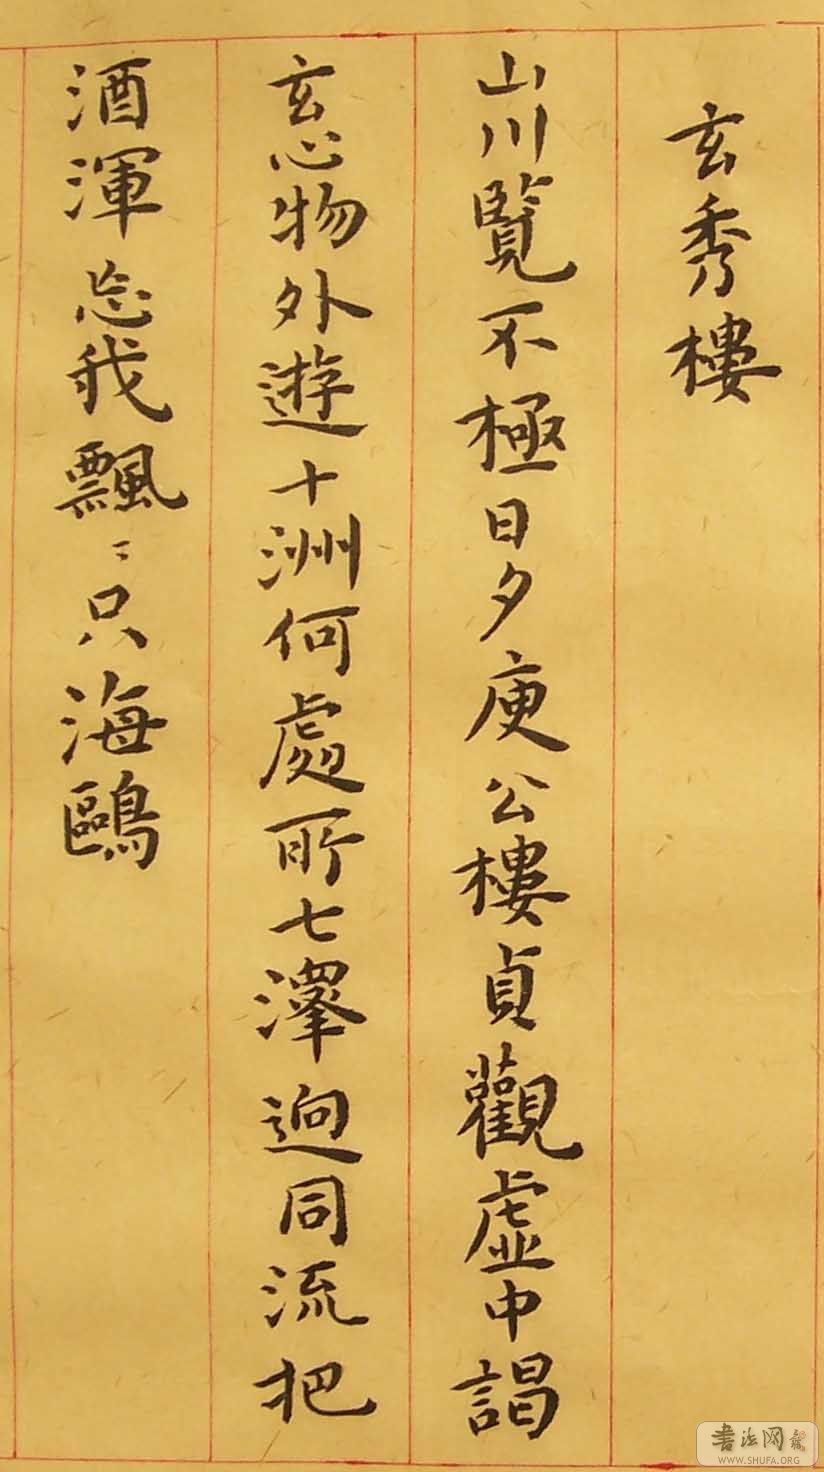 玄秀樓
山川覽不極日夕庾公樓貞觀虛中謁
玄心物外遊十洲何處所七澤迥同流把
酒渾忘我飄〻只海鷗
书法网
WWW.SHUFA.ORG